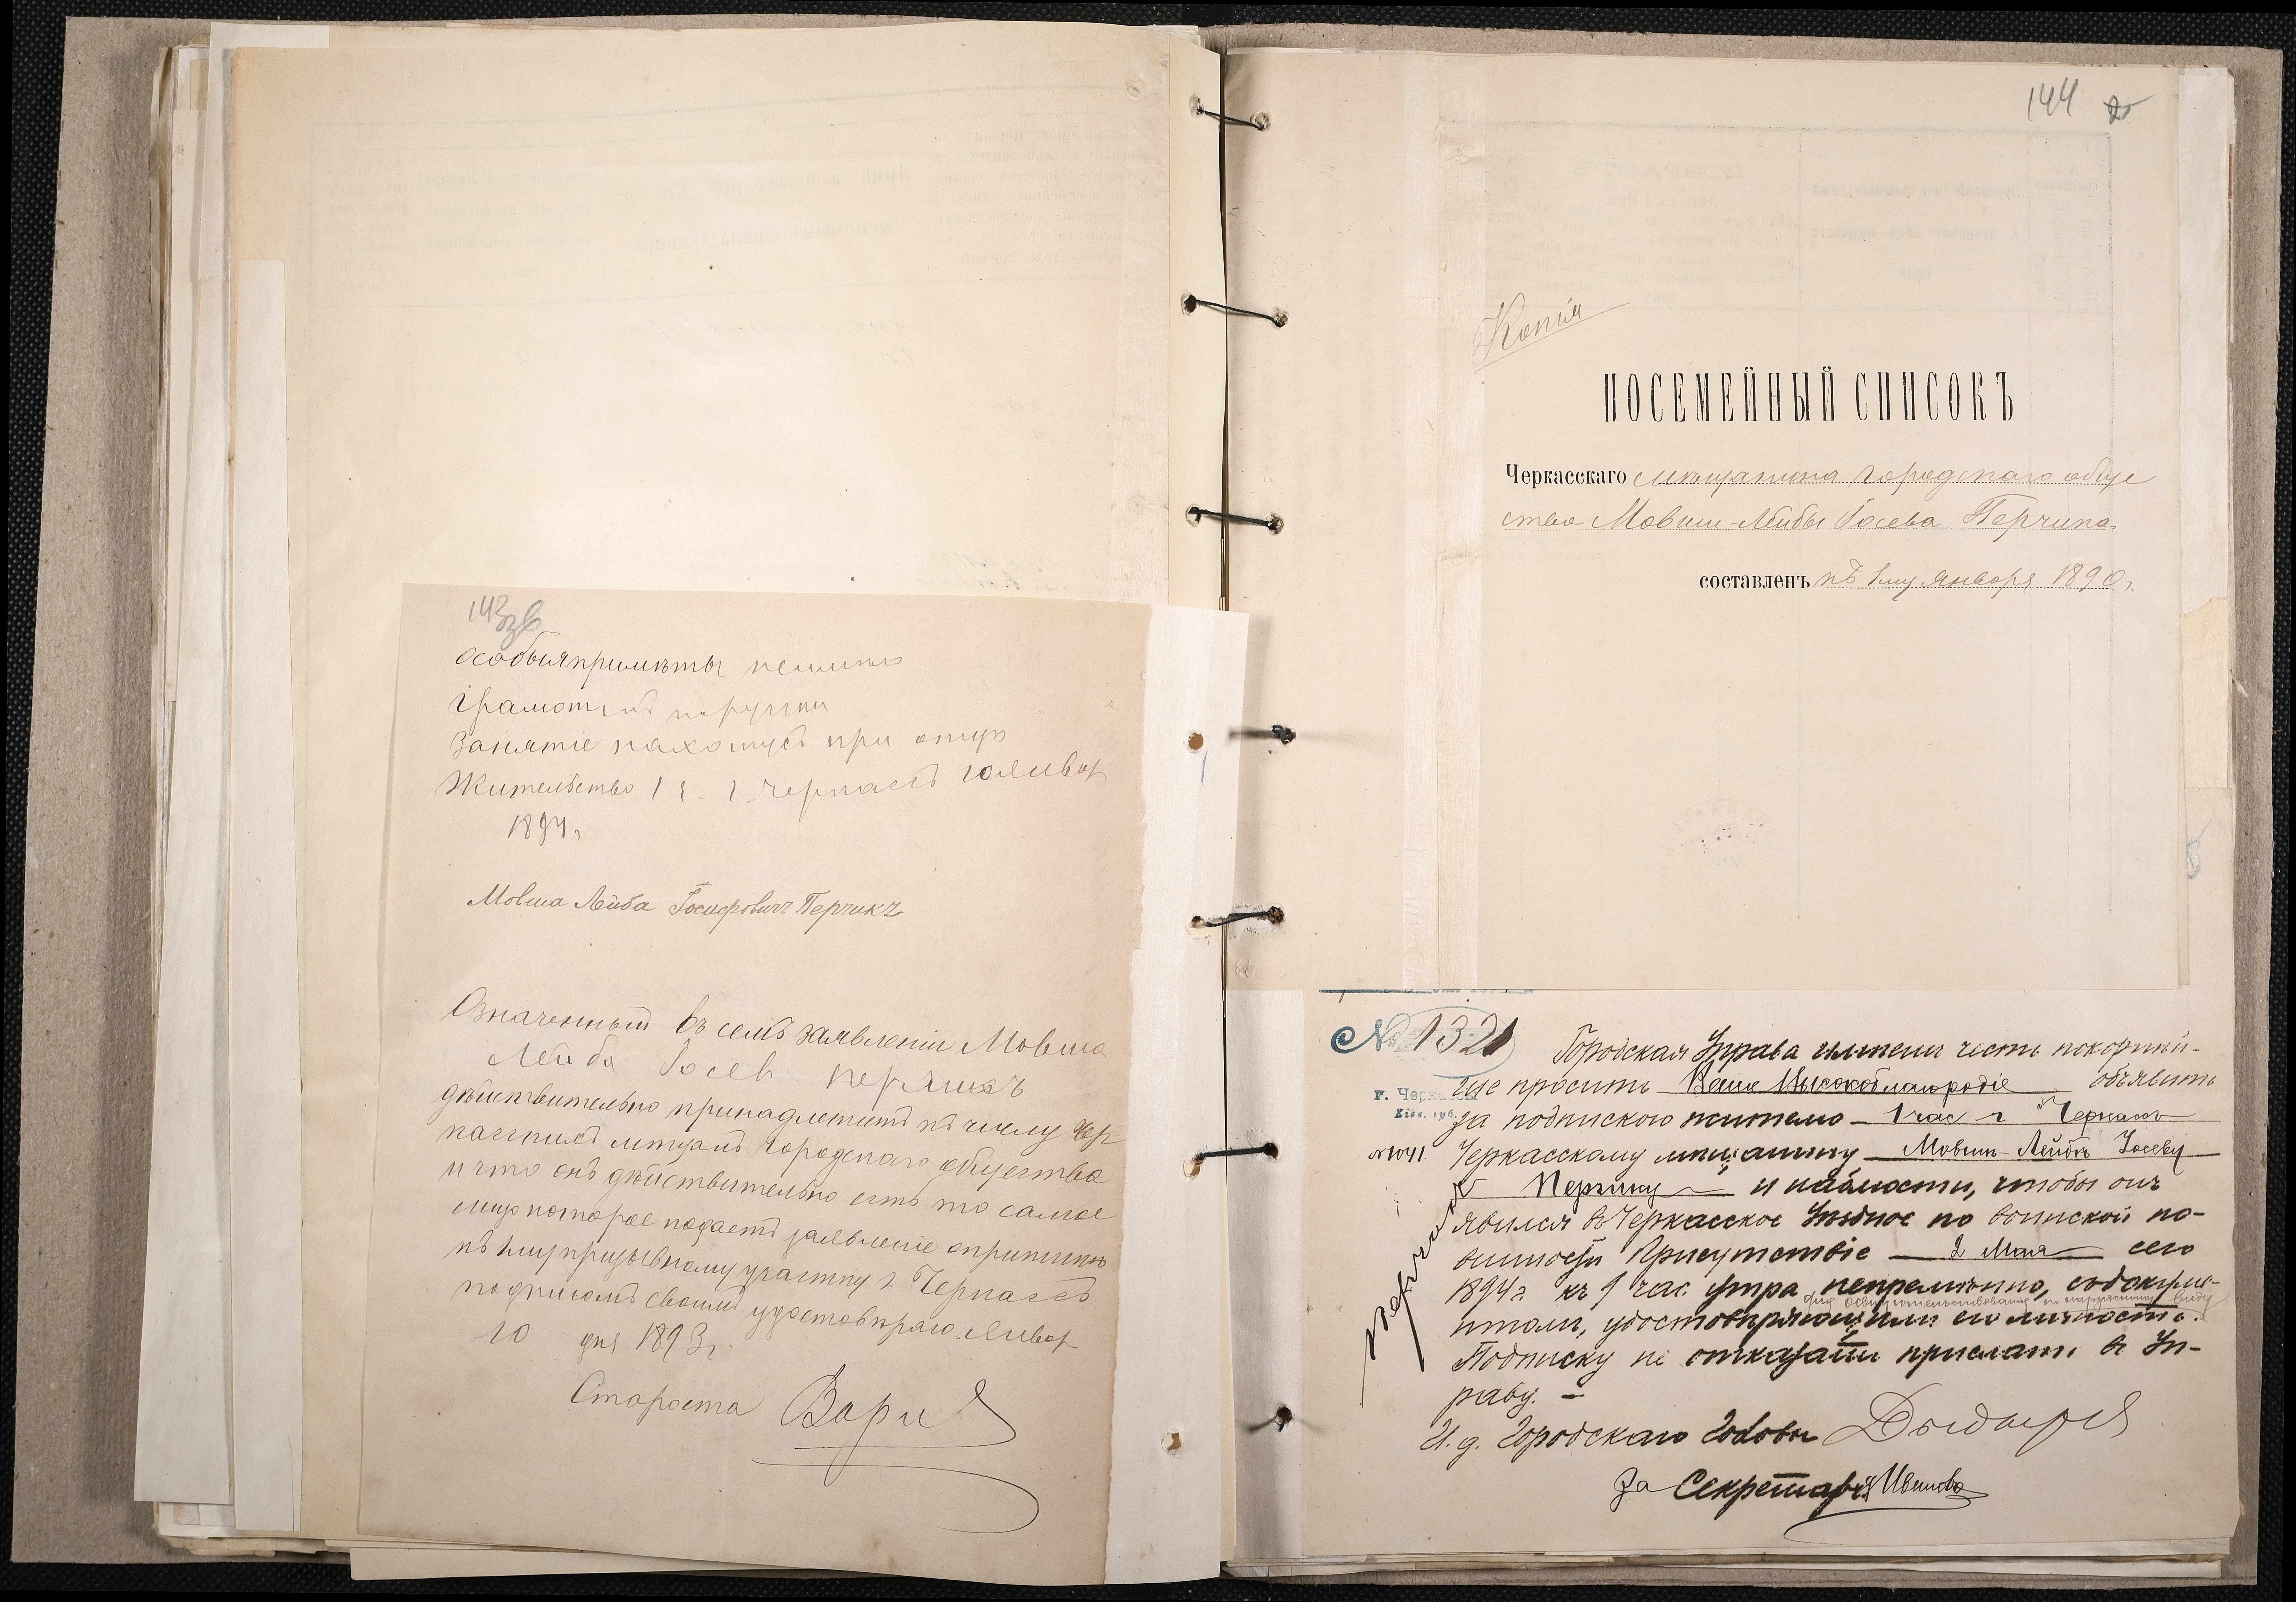 143 зв
особыя приметы
грамот
Занятіе нахожусь при отцѣ
Жительство 1 ч. г. Черкассъ 10 Января
1894 г.
Мовша Лейба Іосифовичъ Перчикъ
Означенный въ семъ заявленіи Мовша
Лейба Іосев Перчикъ
дѣйствительно принадлежитъ къ числу Чер
касскихъ мещанъ городского общества
и что онъ дѣйствительно есть то самое
лицо которое подаетъ заявленіе о припискѣ
къ 1му призывному участку г. Черкассъ
подписомъ своимъ удостовѣряю. Январ
10 дня 1893 г.
Староста
144
Копія
ПОСЕМЕЙНЫЙ СПИСОКЪ
Черкасскаго мѣщанина городскаго обще
ства Мовши-Лейбы Іосева Перчика
составленъ къ 1му января 1890 г.
№ 1321
Городская Управа имѣетъ честь покорнѣй-
ше просить Ваше Высокоблагородіе объявить
г. Черкассы
Кіев. губ.
за подпискою жителю 1 час г. Черкассъ
№ 1041
Черкасскому мѣщанину Мовшѣ-Лейбѣ Іосеву
Перчику и чтобы онъ
явился въ Черкасское Уѣздное по воинской по-
винности Присутствіе 2 Мая сего
1894 г. къ 9 час. утра непремѣнно, съ докумен-
для освидетельствованія по наружному виду
тами, удостовѣряющими его личность.
Подписку не отказать прислать въ Уп-
раву.
И. д. Городскаго Головы
За Секретаря Иванова
Перчикъ